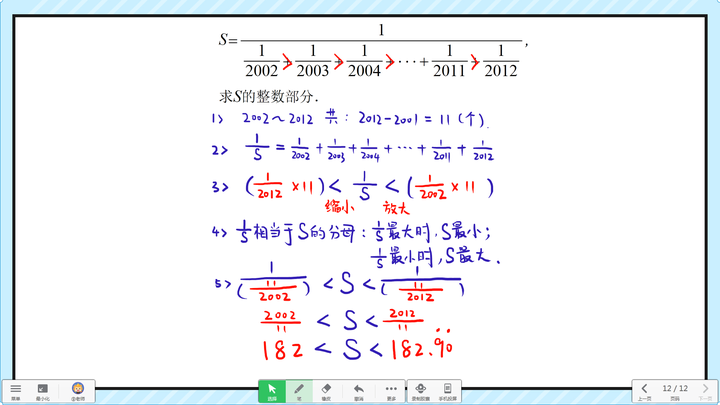 S= 1 / (1/2002 + 1/2003 + 1/2004 + ⋯ + 1/2011 + 1/2012) ,
求S的整数部分.
1> 2002~2012 共: 2012-2001 = 11 (个)
2> 1/S = 1/2002 + 1/2003 + 1/2004 + ⋯ + 1/2011 + 1/2012
3> (1/2012 ×11) < 1/S < (1/2002 ×11)
缩小 放大
4> 1/S相当于S的分母: 1/S最大时,S最小;
1/S最小时,S最大.
5> 1/(11/2002) < S < 1/(11/2012)
2002/11 < S < 2012/11
182 < S < 182.9̇0̇
菜单 最小化 选择 笔 橡皮 撤销 更多 录制胶囊 手机投屏 上一页 12 / 12 页码 下一页